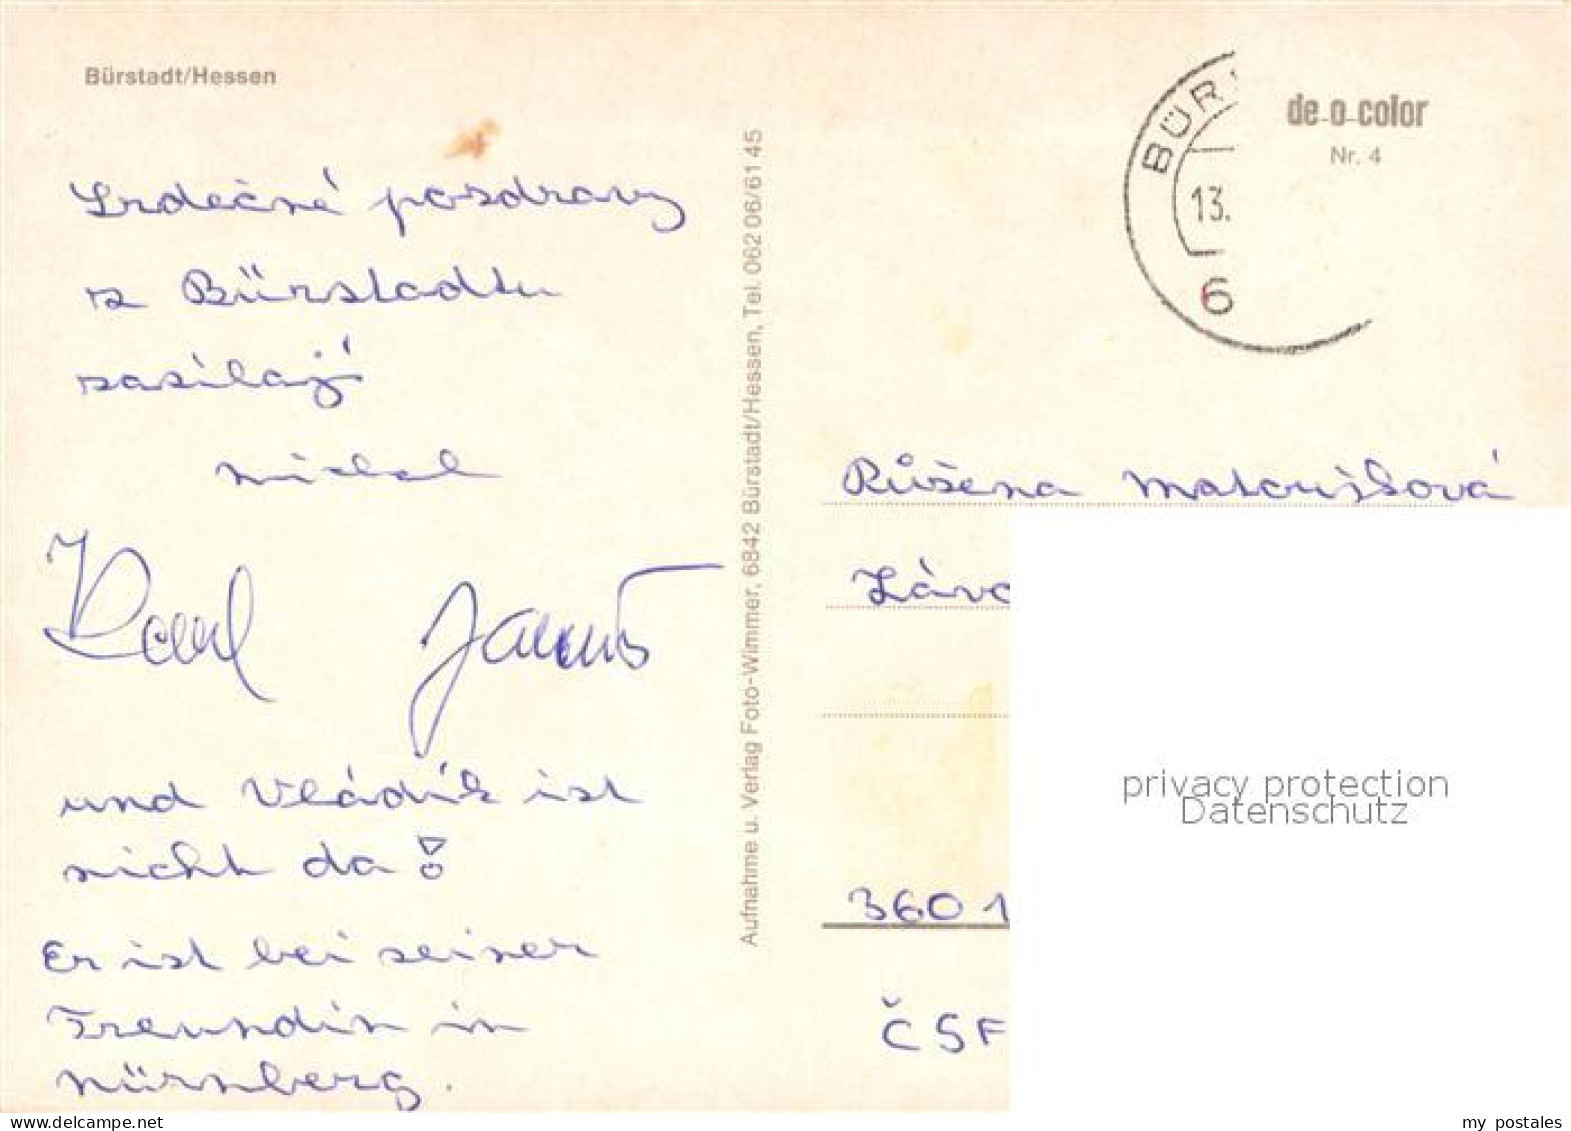 Bürstadt/Hessen
Srdečné pozdravy
z Bürstadtu
zasílají
Michal
Karel
und Vládík ist
nicht da!
Er ist bei seiner
Freundin in
Nürnberg.
Aufnahme u. Verlag Foto-Wimmer, 6842 Bürstadt/Hessen, Tel. 062 06/61 45
BÜR
13.
6
de-o-color
Nr. 4
Růžena Matoušková
3601
ČSF
privacy protection
Datenschutz
www.delcampe.net
my_postales